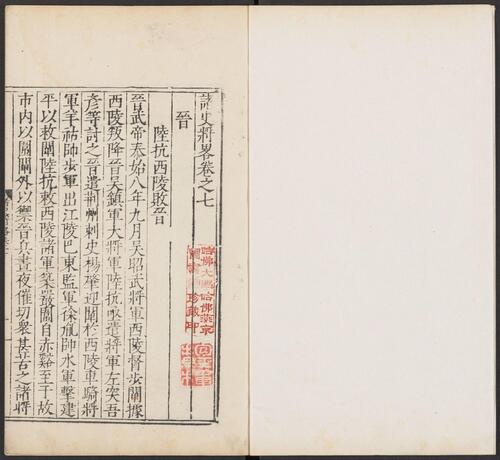 諸史將畧卷之七
晉
陸抗西陵敗晉
晉武帝泰始八年九月吳昭武將軍西陵督步闡據
西陵叛降晉吳鎮軍大將軍陸抗亟遣將軍左奕吾
彦等討之晉遣荆州刺史楊肇迎闡於西陵車騎將
軍羊祜帥步軍出江陵巴東監軍徐胤帥水軍擊建
平以救闡陸抗敕西陵諸軍築嚴圍自赤谿至于故
市内以圍闡外以禦晉兵晝夜催切衆甚苦之諸將
哈佛大
哈佛燕京
珍藏印